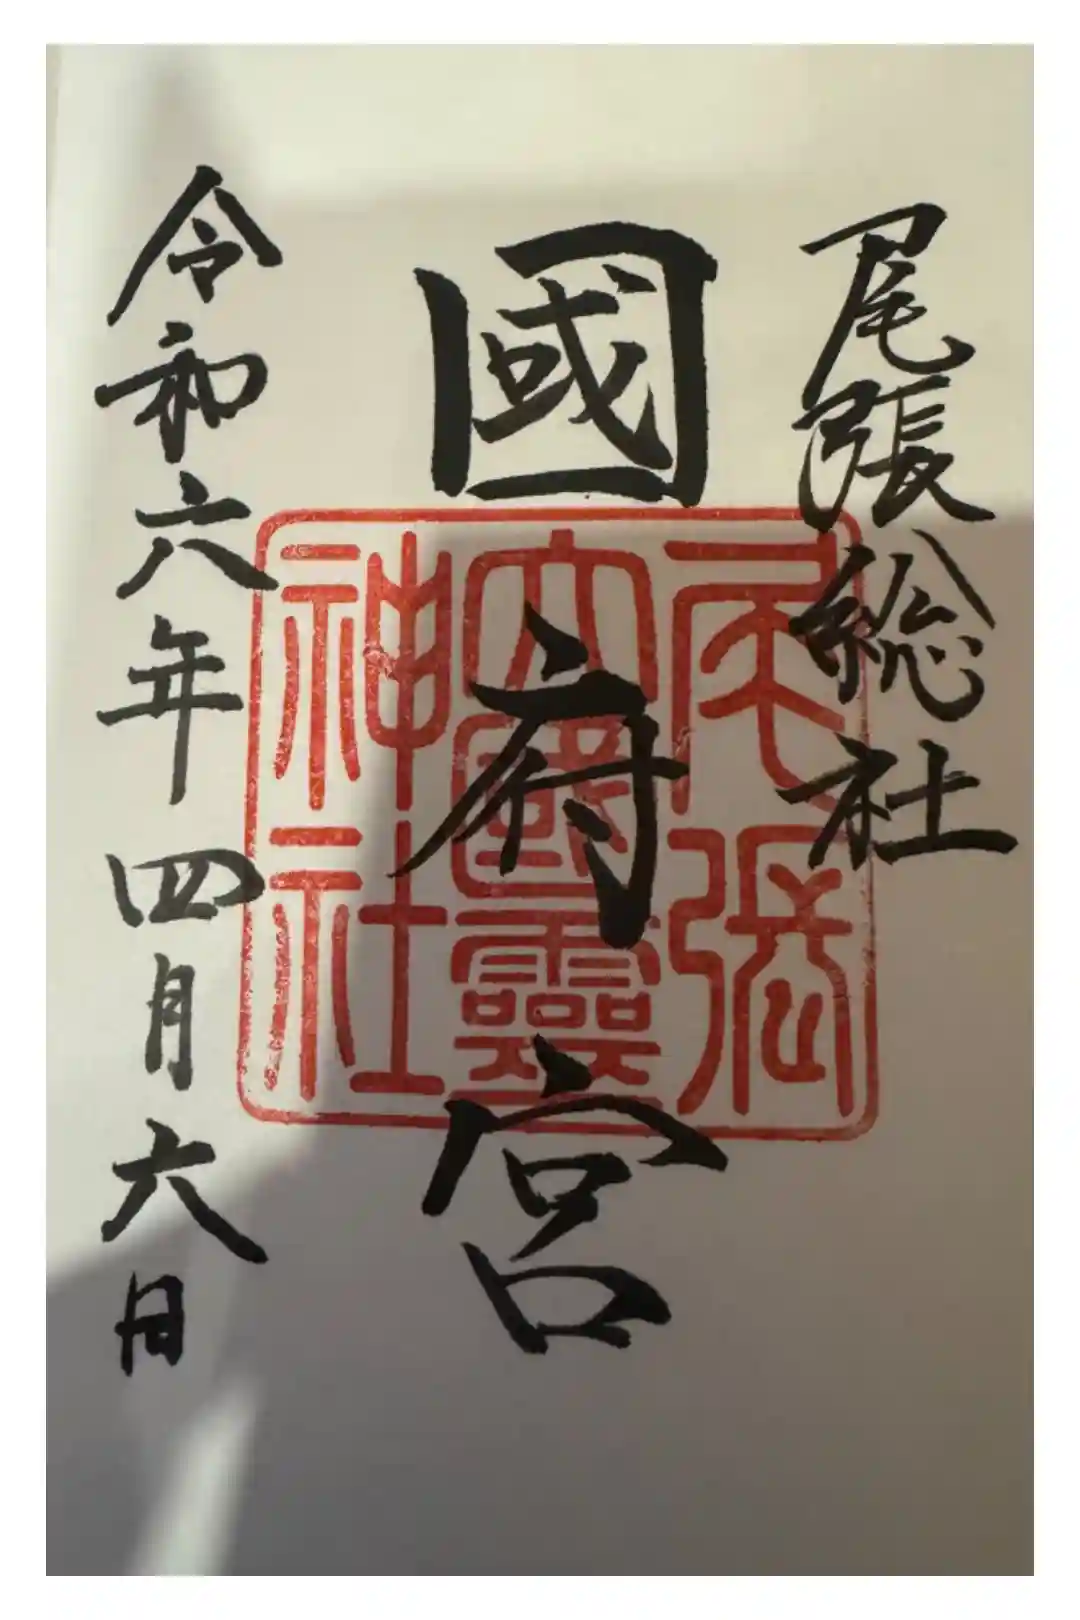 尾張総社
國府宮
令和六年四月六日
尾張
大國霊
神社